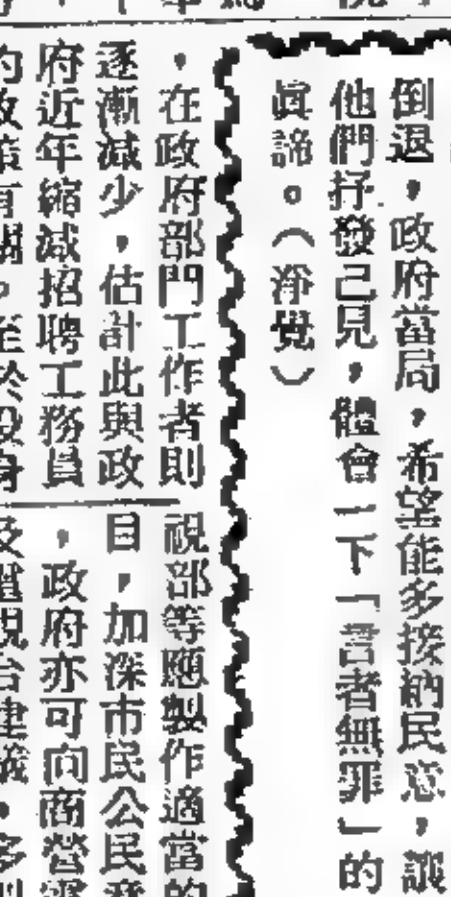 倒退，政府當局，希望能多接納民意，讓
他們抒發己見，體會一下「言者無罪」的
眞諦。（淨覺）
，在政府部門工作者則
逐漸減少，估計此與政
府近年縮減招聘工務員
的政策有關。至於投身
視部等應製作適當的
目，加深市民公民意
，政府亦可向商營電
及電視台建議，多製